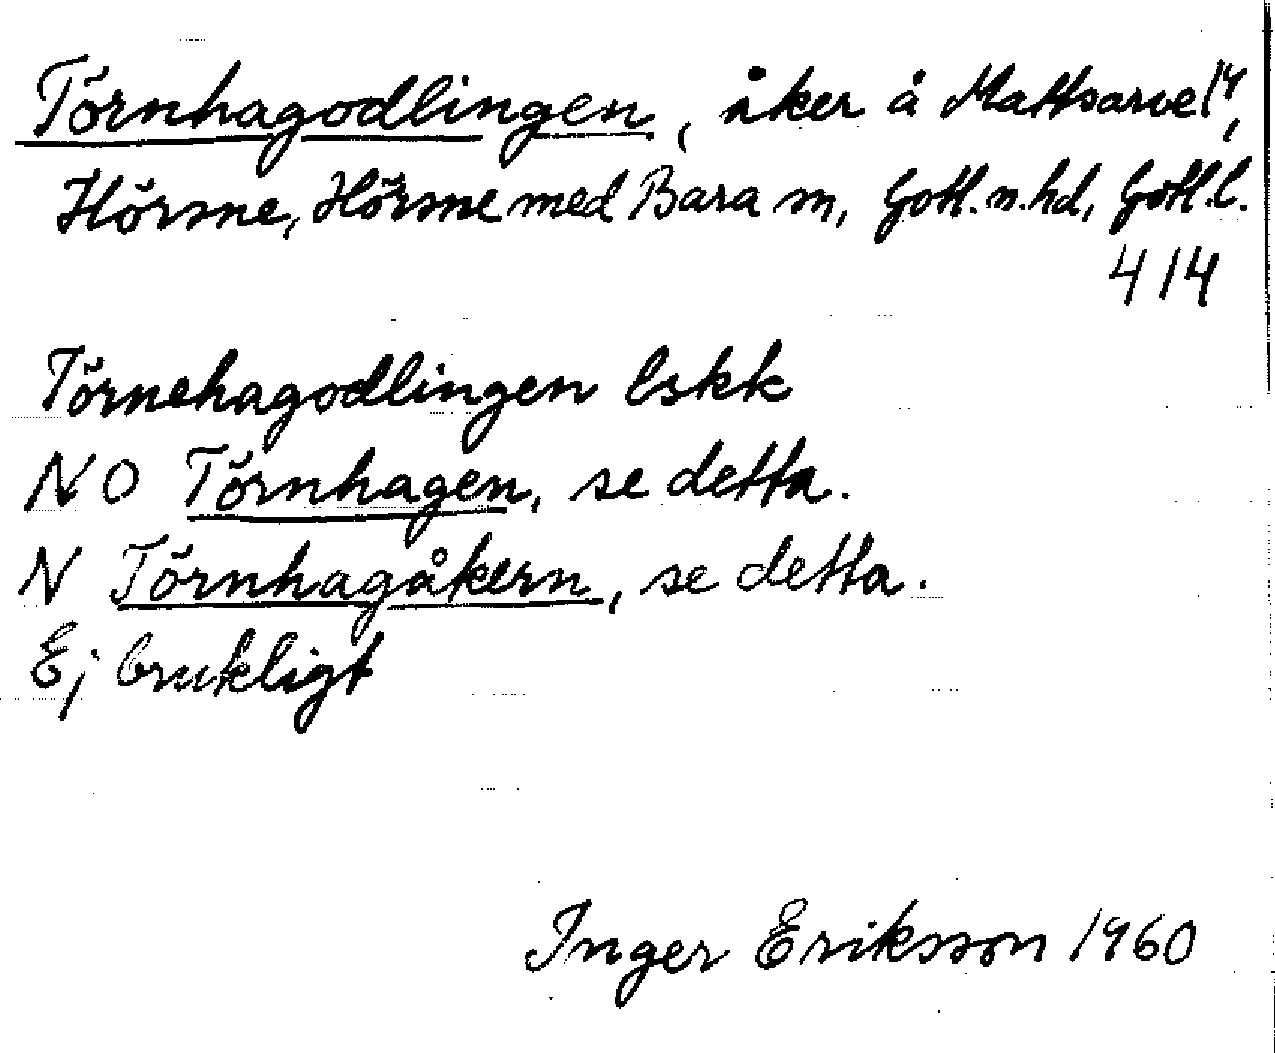 Törnhagodlingen, åker å Mattsarve 1/4,
Hörsne, Hörsne med Bara sn, Gotl. n. hd, Gotl. l.
4 14
Törnehagodlingen lskk
NO Törnhagen, se detta.
N Törnhagåkern, se detta.
Ej brukligt
Inger Eriksson 1960